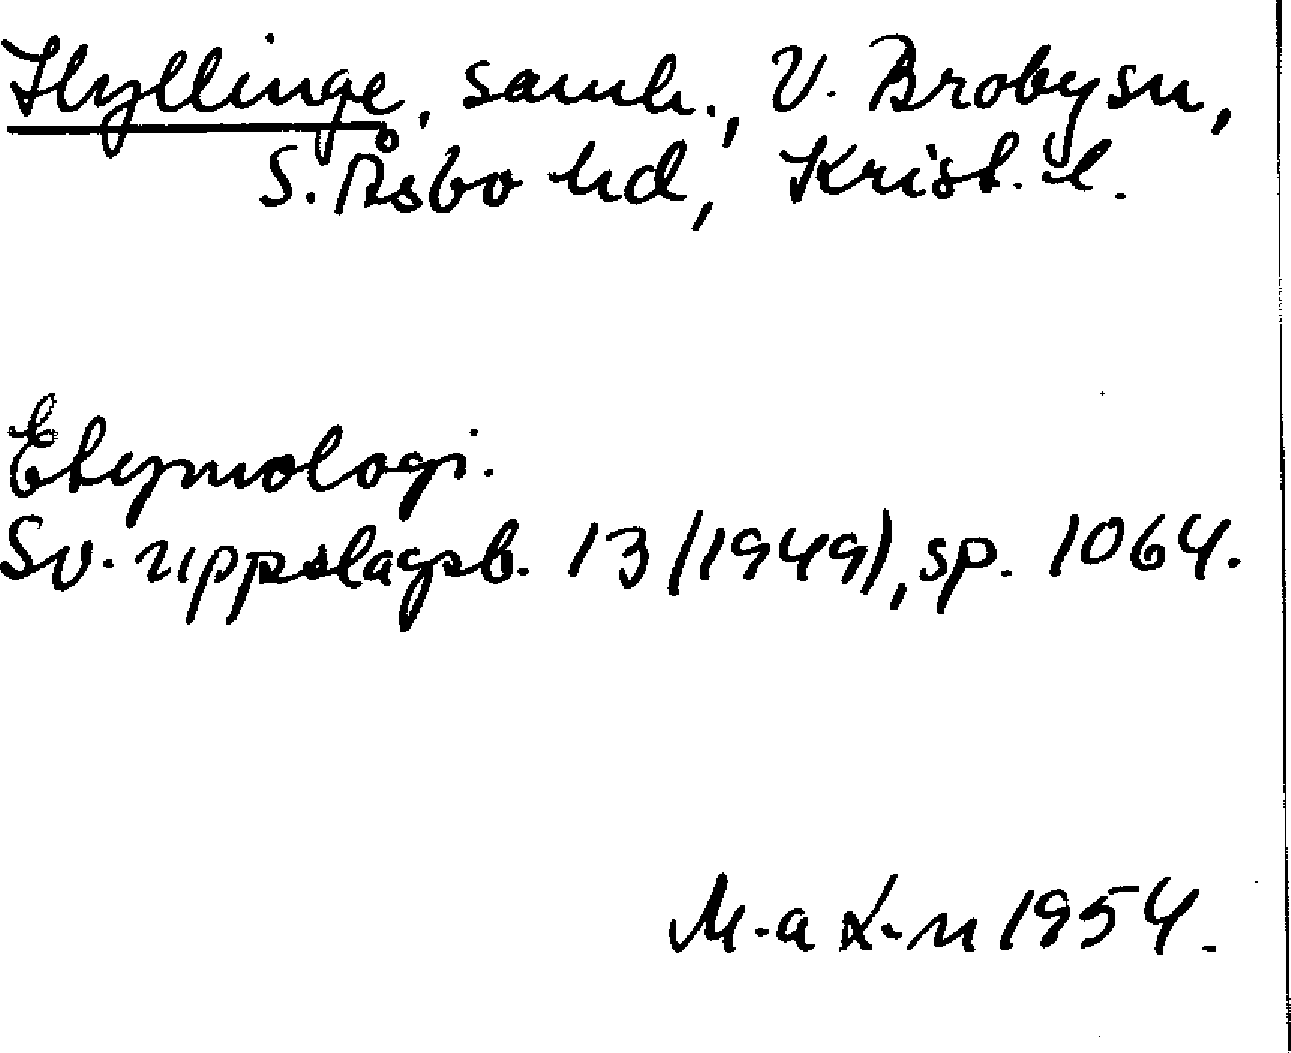 Hyllinge, samh., V. Broby sn,
S. Åsbo hd, Krist. l.
Etymologi.
Sv. uppslagsb. 13 (1949), sp. 1064.
M-a L-n 1954.